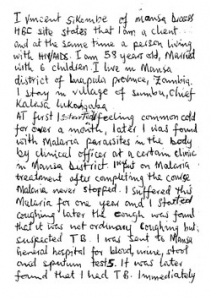 I Vincent Sikembe of Mansa
HBC site states that I am a client
and at the same time a person living
with HIV/AIDS. I am 58 years old, Married
with 6 children. I live in Mansa
district of Luapula province, Zambia.
I stay in village of Sumbu, Chief
Kalasa Lukangaba.
At first I started feeling common cold
for over a month, later I was found
with Malaria parasites in the body
by clinical officer at a certain clinic
in Mansa district. I put on Malaria
treatment after completing the course
Malaria never stopped. I suffered this
Malaria for one year and I started
coughing later the cough was found
that it was not ordinary coughing but
suspected TB. I was sent to Mansa
General hospital for blood, urine, stool
and sputum tests. It was later
found that I had TB. Immediately